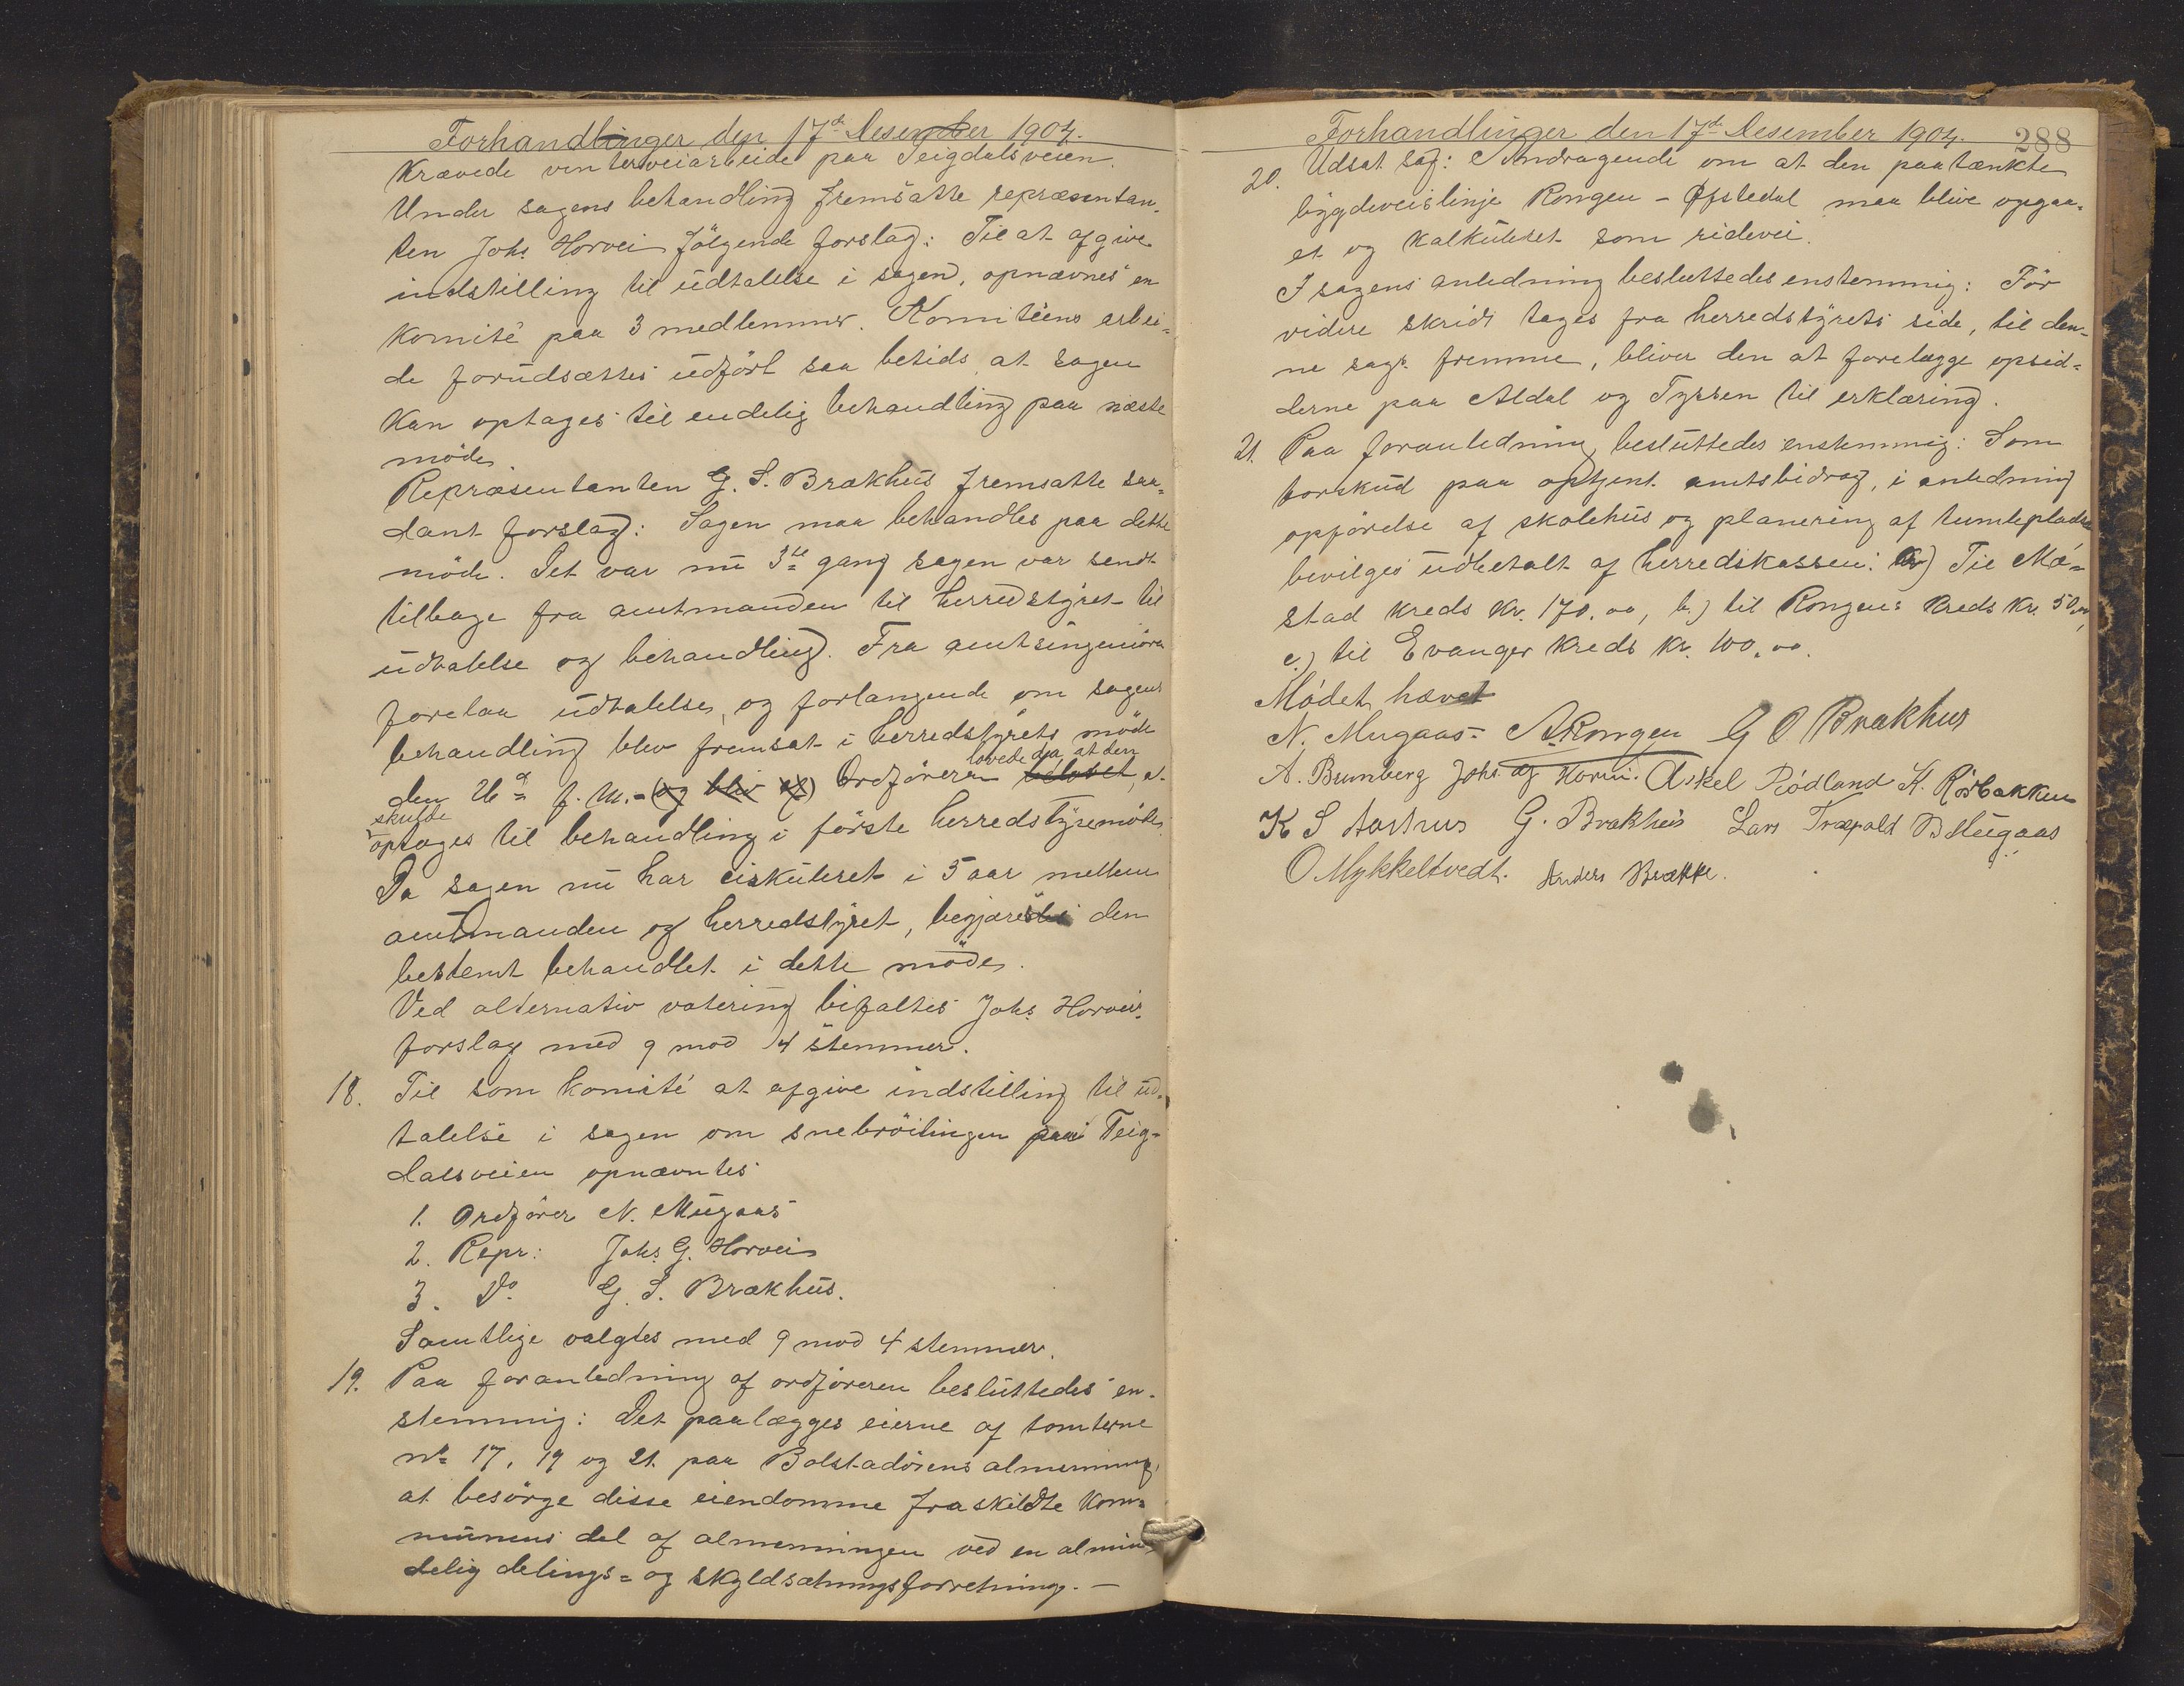 Forhandlinger den 17de Desember 1904.
krævede vintersveiarbeide paa Teigdalsveien.
Under sagens behandling fremsatte repræsentan-
ten Johs Horvei følgende forslag: Til at afgive
indstilling til udtalelse i sagen, opnævnes en
komité paa 3 medlemmer. Komitéens arbei-
de forudsættes udført saa betids at sagen
kan optages til endelig behandling paa næste
møde.
Repræsentanten G. S. Brækhus fremsatte saa-
dant forslag: Sagen maa behandles paa dette
møde. Det var nu 3de gang sagen var sendt
tilbage fra amtmanden til herredstyret til
udtalelse og behandling. Fra amtsingeniøren
forelaa udtalelse, og forlangende om sagens
behandling blev fremsat i herredstyrets møde
lovede da, at den
den 26de f. m. - (og blev af) Ordføreren belovet, at
skulde
optages til behandling i første herredstyremøde.
Da sagen nu har cirkuleret i 5 aar mellem
amtmanden og herredstyret, begjæres den
bestemt behandlet i dette møde.
Ved alternativ votering bifaltes Johs Horveis
forslag med 9 mod 4 stemmer.
18. Til som komité at afgive indstilling til ud-
talelse i sagen om snebrøitingen paa Teig-
dalsveien opnævntes
1. Ordfører N. Mugaas
2. Repr: Johs G. Horvei
3. Do G. S. Brækhus.
Samtlige valgtes med 9 mod 4 stemmer.
19. Paa foranledning af ordføreren besluttedes en-
stemmig: Det paalægges eierne af tomterne
No 17, 19 og 21 paa Bolstadørens almenning,
at besørge disse eiendomme fraskildte kom-
munens del af almenningen ved en almin-
delig delings- og skyldsætningsforretning. —
Forhandlinger den 17de Desember 1904. 288
20. Udsat sag: Andragende om at den paatænkte
bygdeveislinje Rongen - Øfstedal maa blive opgaa-
et og kalkuleret som ridevei.
I sagens anledning besluttedes enstemmig: Før
videre skridt tages fra herredstyrets side, til den-
ne sags fremme, bliver den at forelægge opsid-
derne paa Aldal og Tyssen til erklæring.
21. Paa foranledning besluttedes enstemmig: Som
forskud paa optjent amtsbidrag, i anledning
opførelse af skolehus og planering af tumleplads
bevilges udbetalt af herredskassen: a) Til Mø-
stad kreds kr. 170.00, b.) til Rongens kreds kr. 50.00,
c.) til Evanger kreds kr. 100.00.
Mødet hævet
N. Mugaas. A Rongen G O Brakhus
A. Brunberg Johs G Horvei. Askel Rödland K. Rörbakken
K S Aarhus G. Brakhus Lars Træfald B Mugaas
O Mykkeltvedt. Anders Brække.